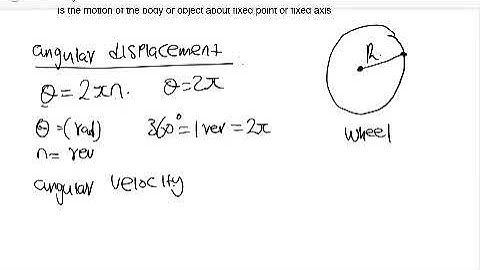 is the motion of the body or object about fixed point or fixed axis
angular displacement
θ = 2πn. θ = 2π
θ = (rad) 360° = 1 rev = 2π
n = rev
angular velocity
R
wheel